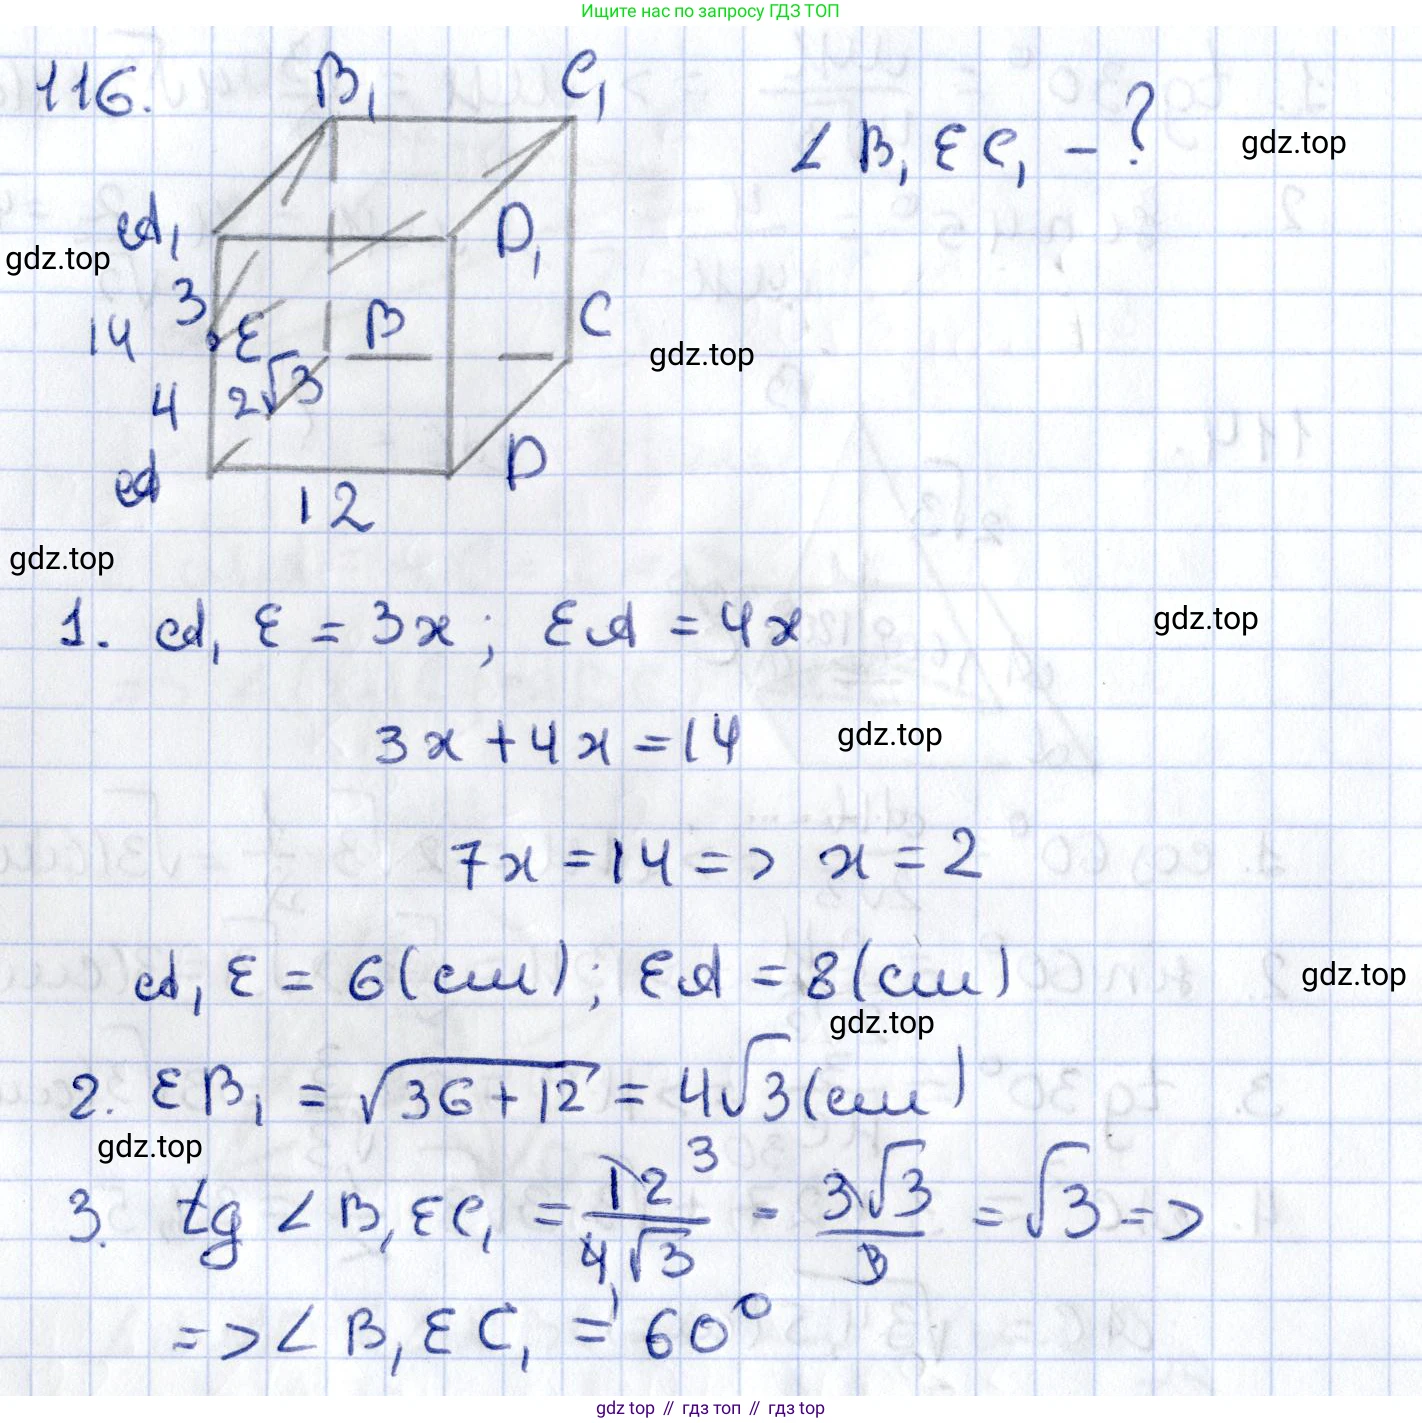 Ищите нас по запросу ГДЗ ТОП
116.
B₁ C₁
∠ B₁ E C₁ - ?
gdz.top
A₁ D₁
gdz.top
3
14 E B C
gdz.top
4 2√3
A D
12
gdz.top
1. A₁E = 3x; EA = 4x
gdz.top
3x + 4x = 14
gdz.top
7x = 14 => x = 2
A₁E = 6 (см); EA = 8 (см)
gdz.top
gdz.top
2. EB₁ = √36 + 12 = 4√3 (см)
gdz.top
3. tg ∠ B₁EC₁ = 12 3 / 4 1 √3 = 3√3 / 3 = √3 =>
=> ∠ B₁EC₁ = 60°
gdz top // гдз топ // gdz top